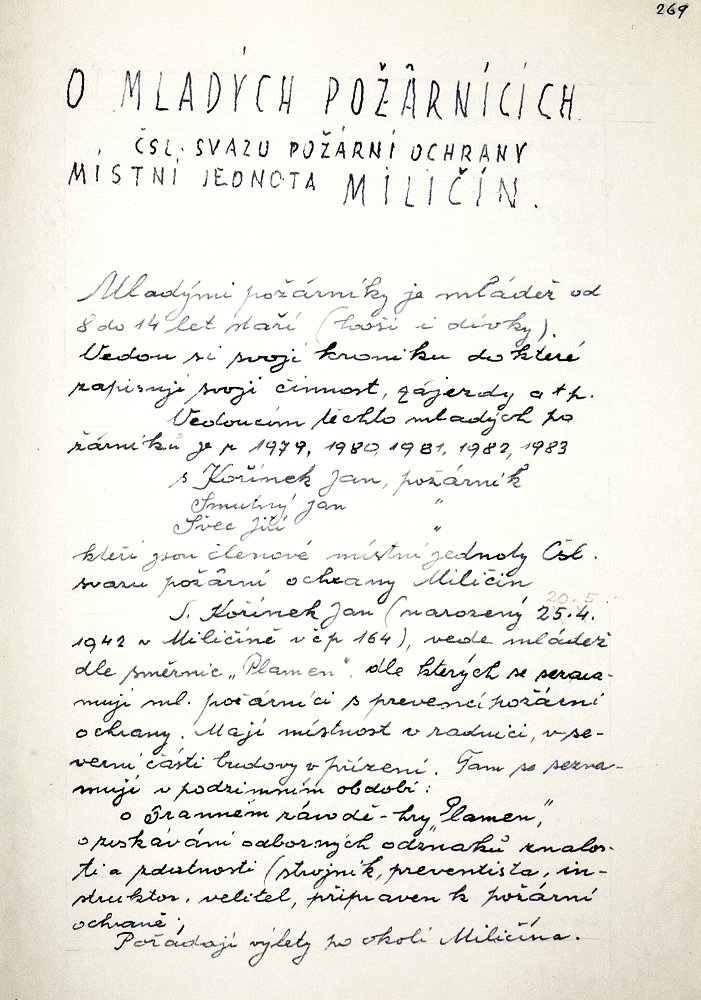 269
O MLADÝCH POŽÁRNÍCÍCH
ČSL. SVAZU POŽÁRNÍ OCHRANY
MÍSTNÍ JEDNOTA MILIČÍN.
Mladými požárníky je mládež od
8 do 14 let staří (hoši i dívky).
Vedou si svojí kroniku do které
zapisují svoji činnost, zájezdy a t p.
Vedoucím těchto mladých po
žárníků je r 1979, 1980, 1981, 1982, 1983
s Kořínek Jan, požárník
Smutný Jan "
Švec Jiří "
kteří jsou členové místní jednoty Čsl.
svazu požární ochrany Miličín
20.5.
S. Kořínek Jan (narozený 25.4.
1942 v Miličíně v čp 164), vede mládež
dle směrnic „Plamen", dle kterých se sezna-
mují ml. požárníci s prevencí požární
ochrany. Mají místnost v radnici, v se-
verní části budovy v přízení. Tam se sezna-
mují v podzimním období:
o branném závodě - hry „Plamen",
o získávání odborných odznaků znalos-
ti a zdatnosti (strojník, preventista, in-
struktor, velitel, připraven k požární
ochraně;
Pořádají výlety po okolí Miličína.